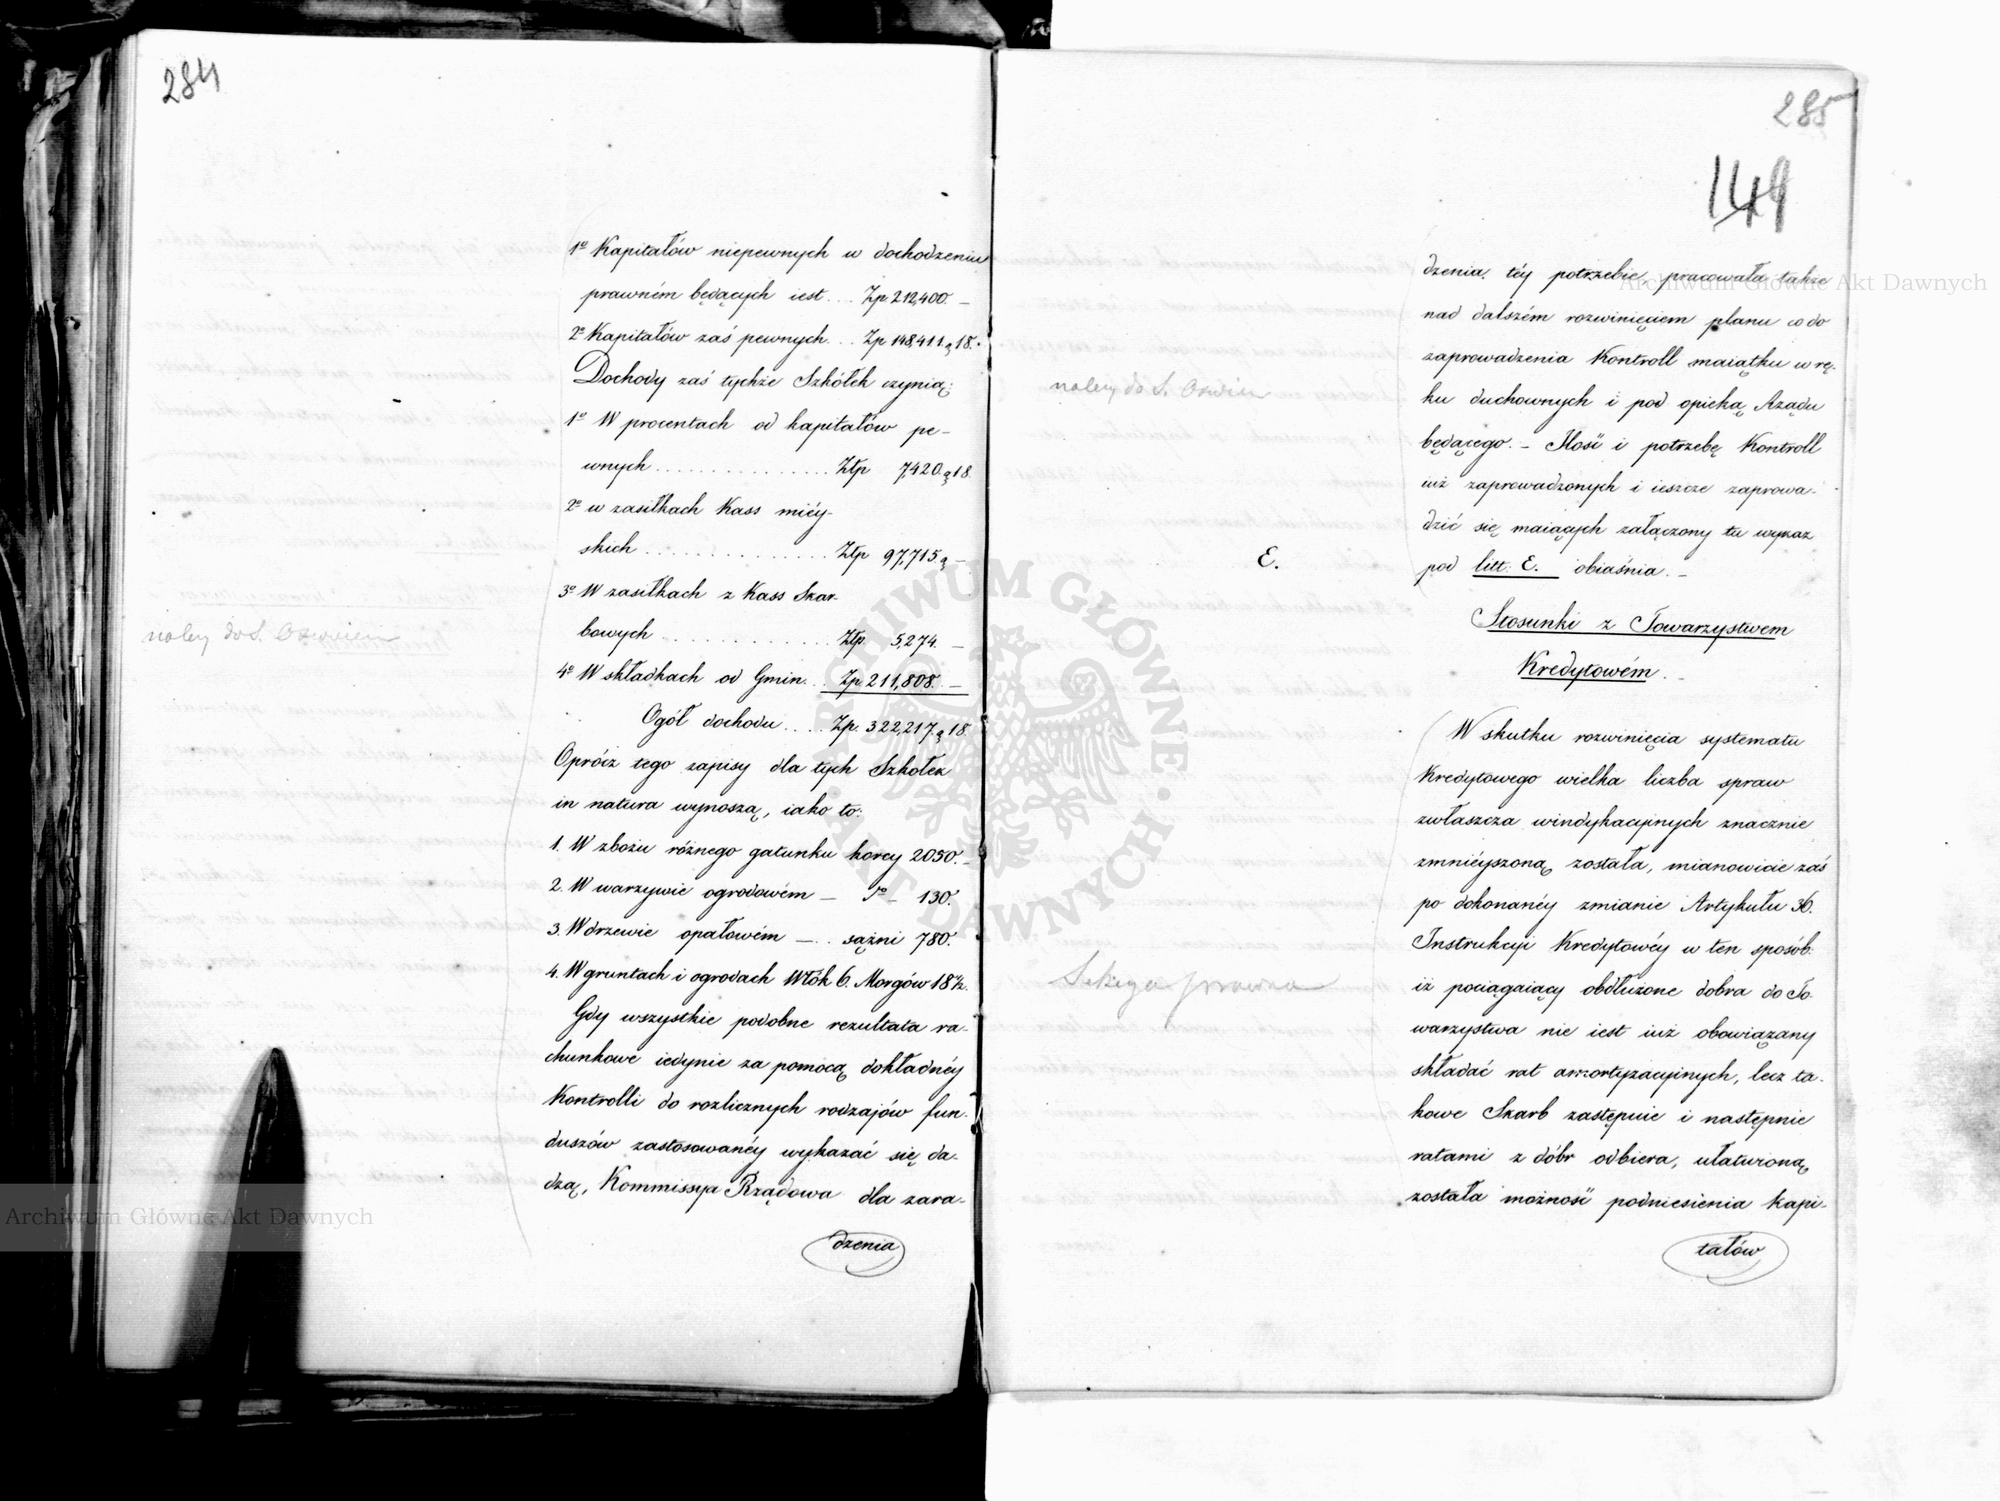 284
1o Kapitałów niepewnych w dochodzeniu
prawném będących iest . . . Zp 212,400. —
2o Kapitałów zaś pewnych . . . Zp 148,411 g 18.
Dochody zaś tychże Szkółek czynią:
1o W procentach od kapitałów pe-
wnych . . . . . . . . . . . . . . Złp 7,420. g 18.
2o w zasiłkach Kass miéy-
skich . . . . . . . . . . . . . . Złp 97,715. g —
3o W zasiłkach z Kass Skar-
bowych . . . . . . . . . . . . Złp. 5,274. —
4o W składkach od Gmin . . Zp. 211,808. —
Ogół dochodu . . . . Zp. 322,217. g 18.
Oprócz tego zapisy dla tych Szkółek
in natura wynoszą, iako to:
1. W zbożu różnego gatunku korcy 2050. —
2. W warzywie ogrodowém — do — 130.
3. W drzewie opałowém — . . sążni 780.
4. W gruntach i ogrodach Włók 6. Morgów 18 1/2.
Gdy wszystkie podobne rezultata ra-
chunkowe iedynie za pomocą dokładnéy
Kontrolli do rozlicznych rodzajów fun-
duszów zastosowanéy wykazać się da-
dzą, Kommissya Rządowa dla zara-
dzenia
należy do S. Oświecen
285
149
dzenia téy potrzebie, pracowała także
nad dalszém rozwinięciem planu co do
zaprowadzenia Kontroll maiątku w rę-
ku duchownych i pod opieką Rządu
będącego. — Ilość i potrzebę Kontroll
iuż zaprowadzonych i ieszcze zaprowa-
dzić się maiących załączony tu wykaz
pod litt: E. obiaśnia. —
należy do S. Oświecen
E.
Stosunki z Towarzystwem
Kredytowém. —
W skutku rozwinięcia systematu
Kredytowego wielka liczba spraw
zwłaszcza windykacyinych znacznie
zmniéyszoną została, mianowicie zaś
po dokonanéy zmianie Artykułu 36.
Instrukcyi Kredytowéy w ten sposób:
iż pociągaiący obdłużone dobra do To-
warzystwa nie iest iuż obowiązany
składać rat amortyzacyinych, lecz ta-
kowe Skarb zastępuie i następnie
ratami z dóbr odbiera, ułatwioną
została możność podniesienia kapi-
tałów
Sekcya prawna
Archiwum Główne Akt Dawnych
Archiwum Główne Akt Dawnych
ARCHIWUM GŁÓWNE · AKT DAWNYCH ·